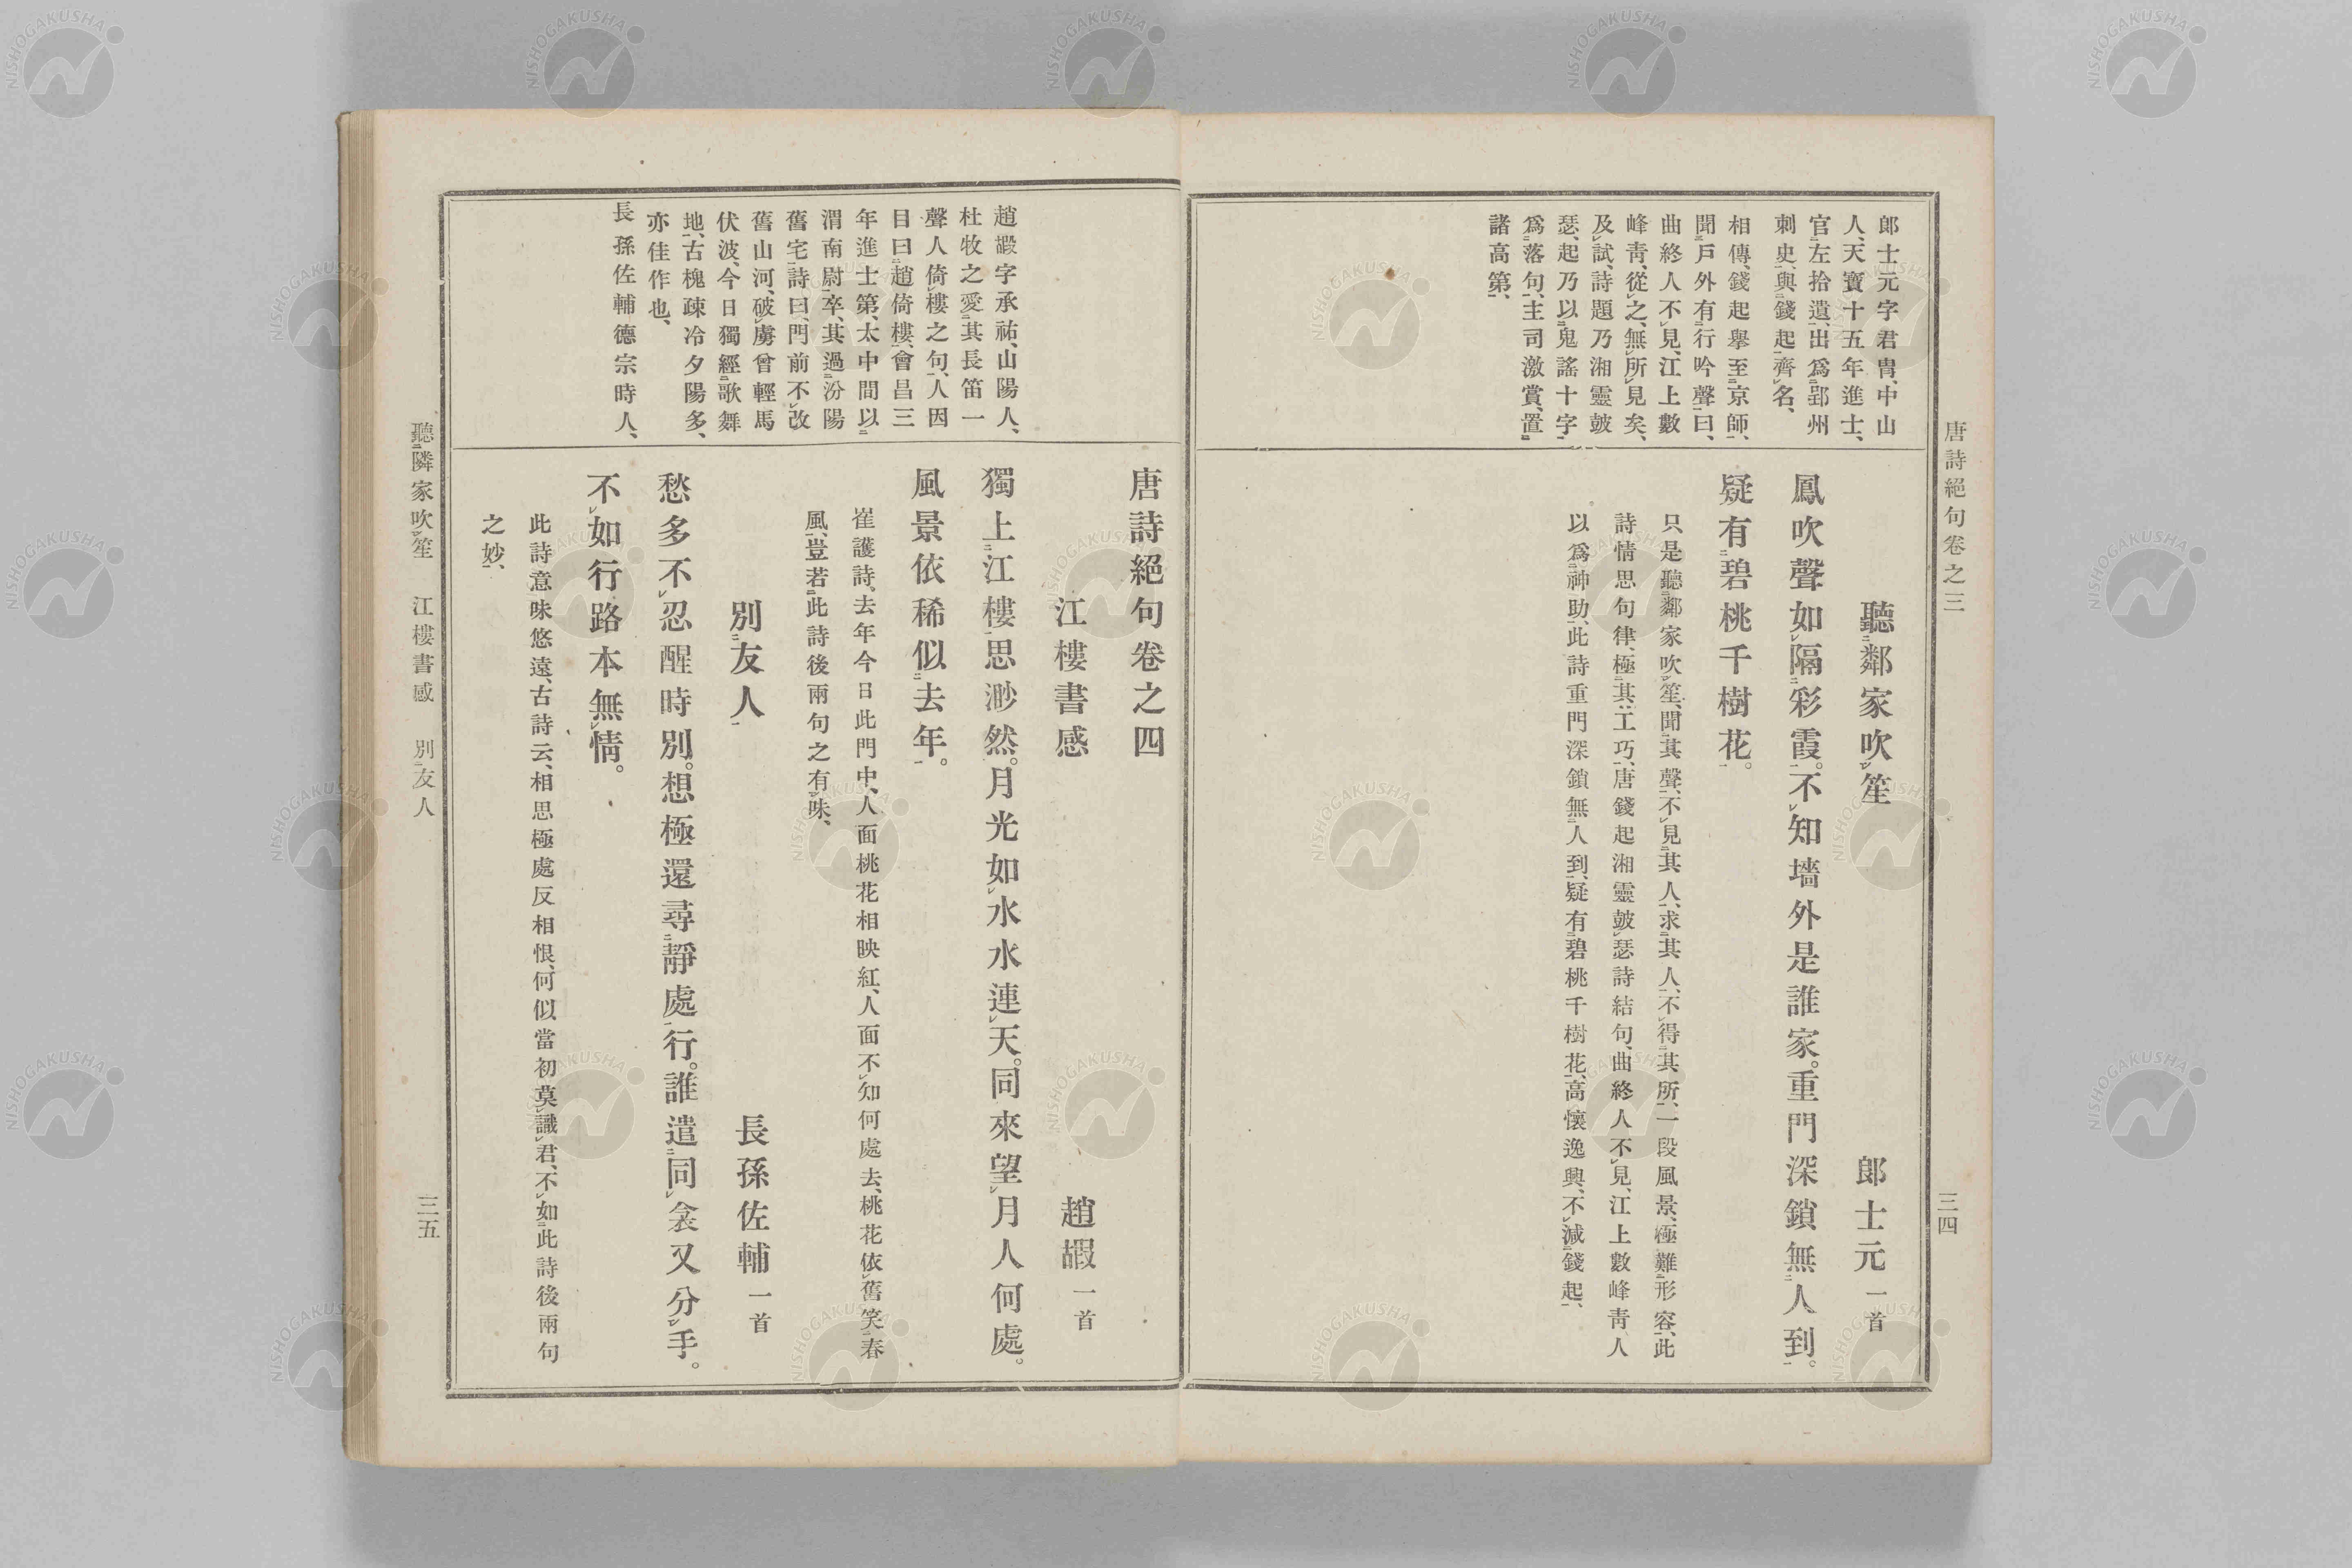 唐詩絕句卷之三
三四
郞士元字君冑、中山
人、天寶十五年進士、
官左拾遺、出爲郢州
刺史、與錢起齊名、
相傳、錢起擧至京師、
聞戶外有行吟聲曰、
曲終人不見、江上數
峰靑、從之、無所見矣、
及試、詩題乃湘靈皷
瑟、起乃以鬼謠十字
爲落句、主司激賞、置
諸高第、
聽鄰家吹笙
郞士元 一首
鳳吹聲如隔彩霞。不知墻外是誰家。重門深鎖無人到。
疑有碧桃千樹花。
只是聽鄰家吹笙、聞其聲、不見其人、求其人、不得其所、一段風景、極難形容、此
詩情思句律、極其工巧、唐錢起湘靈皷瑟詩結句、曲終人不見、江上數峰靑、人
以爲神助、此詩重門深鎖無人到、疑有碧桃千樹花、高懷逸興、不減錢起、
趙嘏字承祐、山陽人、
杜牧之愛其長笛一
聲人倚樓之句、人因
目曰趙倚樓、會昌三
年進士第、太中間以
渭南尉卒、其過汾陽
舊宅詩曰、門前不改
舊山河、破虜曾輕馬
伏波、今日獨經歌舞
地、古槐疎冷夕陽多、
亦佳作也、
長孫佐輔德宗時人、
唐詩絕句卷之四
江樓書感
趙嘏 一首
獨上江樓思渺然。月光如水水連天。同來望月人何處。
風景依稀似去年。
崔護詩、去年今日此門中、人面桃花相映紅、人面不知何處去、桃花依舊笑春
風、豈若此詩後兩句之有味、
別友人
長孫佐輔 一首
愁多不忍醒時別。想極還尋靜處行。誰遣同衾又分手。
不如行路本無情。
此詩意味悠遠、古詩云、相思極處反相恨、何似當初莫識君、不如此詩後兩句
之妙、
聽隣家吹笙 江樓書感 別友人
三五
NISHOGAKUSHA